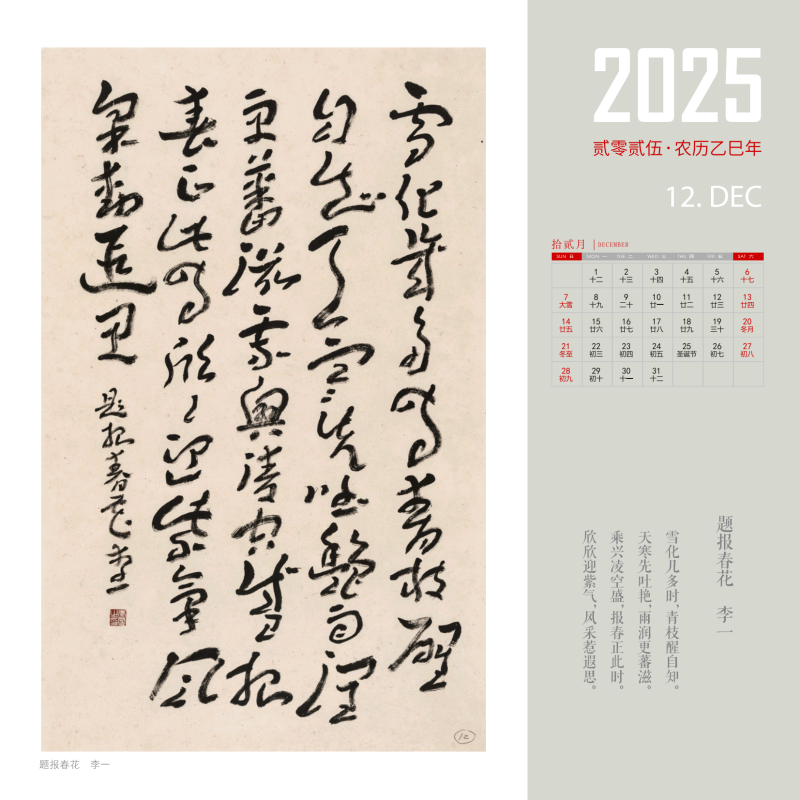 雪化幾多时青枝醒
自知天寒先吐艳雨润
更蕃滋乘興凌空盛报
春正此时欣欣迎紫氣风
采惹遐思
题报春花 李一
12
题报春花 李一
2025
贰零贰伍·农历乙巳年
12. DEC
拾贰月 | DECEMBER
SUN 日 MON 一 TUE 二 WED 三 THU 四 FRI 五 SAT 六
1 2 3 4 5 6
十二 十三 十四 十五 十六 十七
7 8 9 10 11 12 13
大雪 十九 二十 廿一 廿二 廿三 廿四
14 15 16 17 18 19 20
廿五 廿六 廿七 廿八 廿九 三十 冬月
21 22 23 24 25 26 27
冬至 初三 初四 初五 圣诞节 初七 初八
28 29 30 31
初九 初十 十一 十二
题报春花 李一
雪化几多时，青枝醒自知。
天寒先吐艳，雨润更蕃滋。
乘兴凌空盛，报春正此时。
欣欣迎紫气，风采惹遐思。